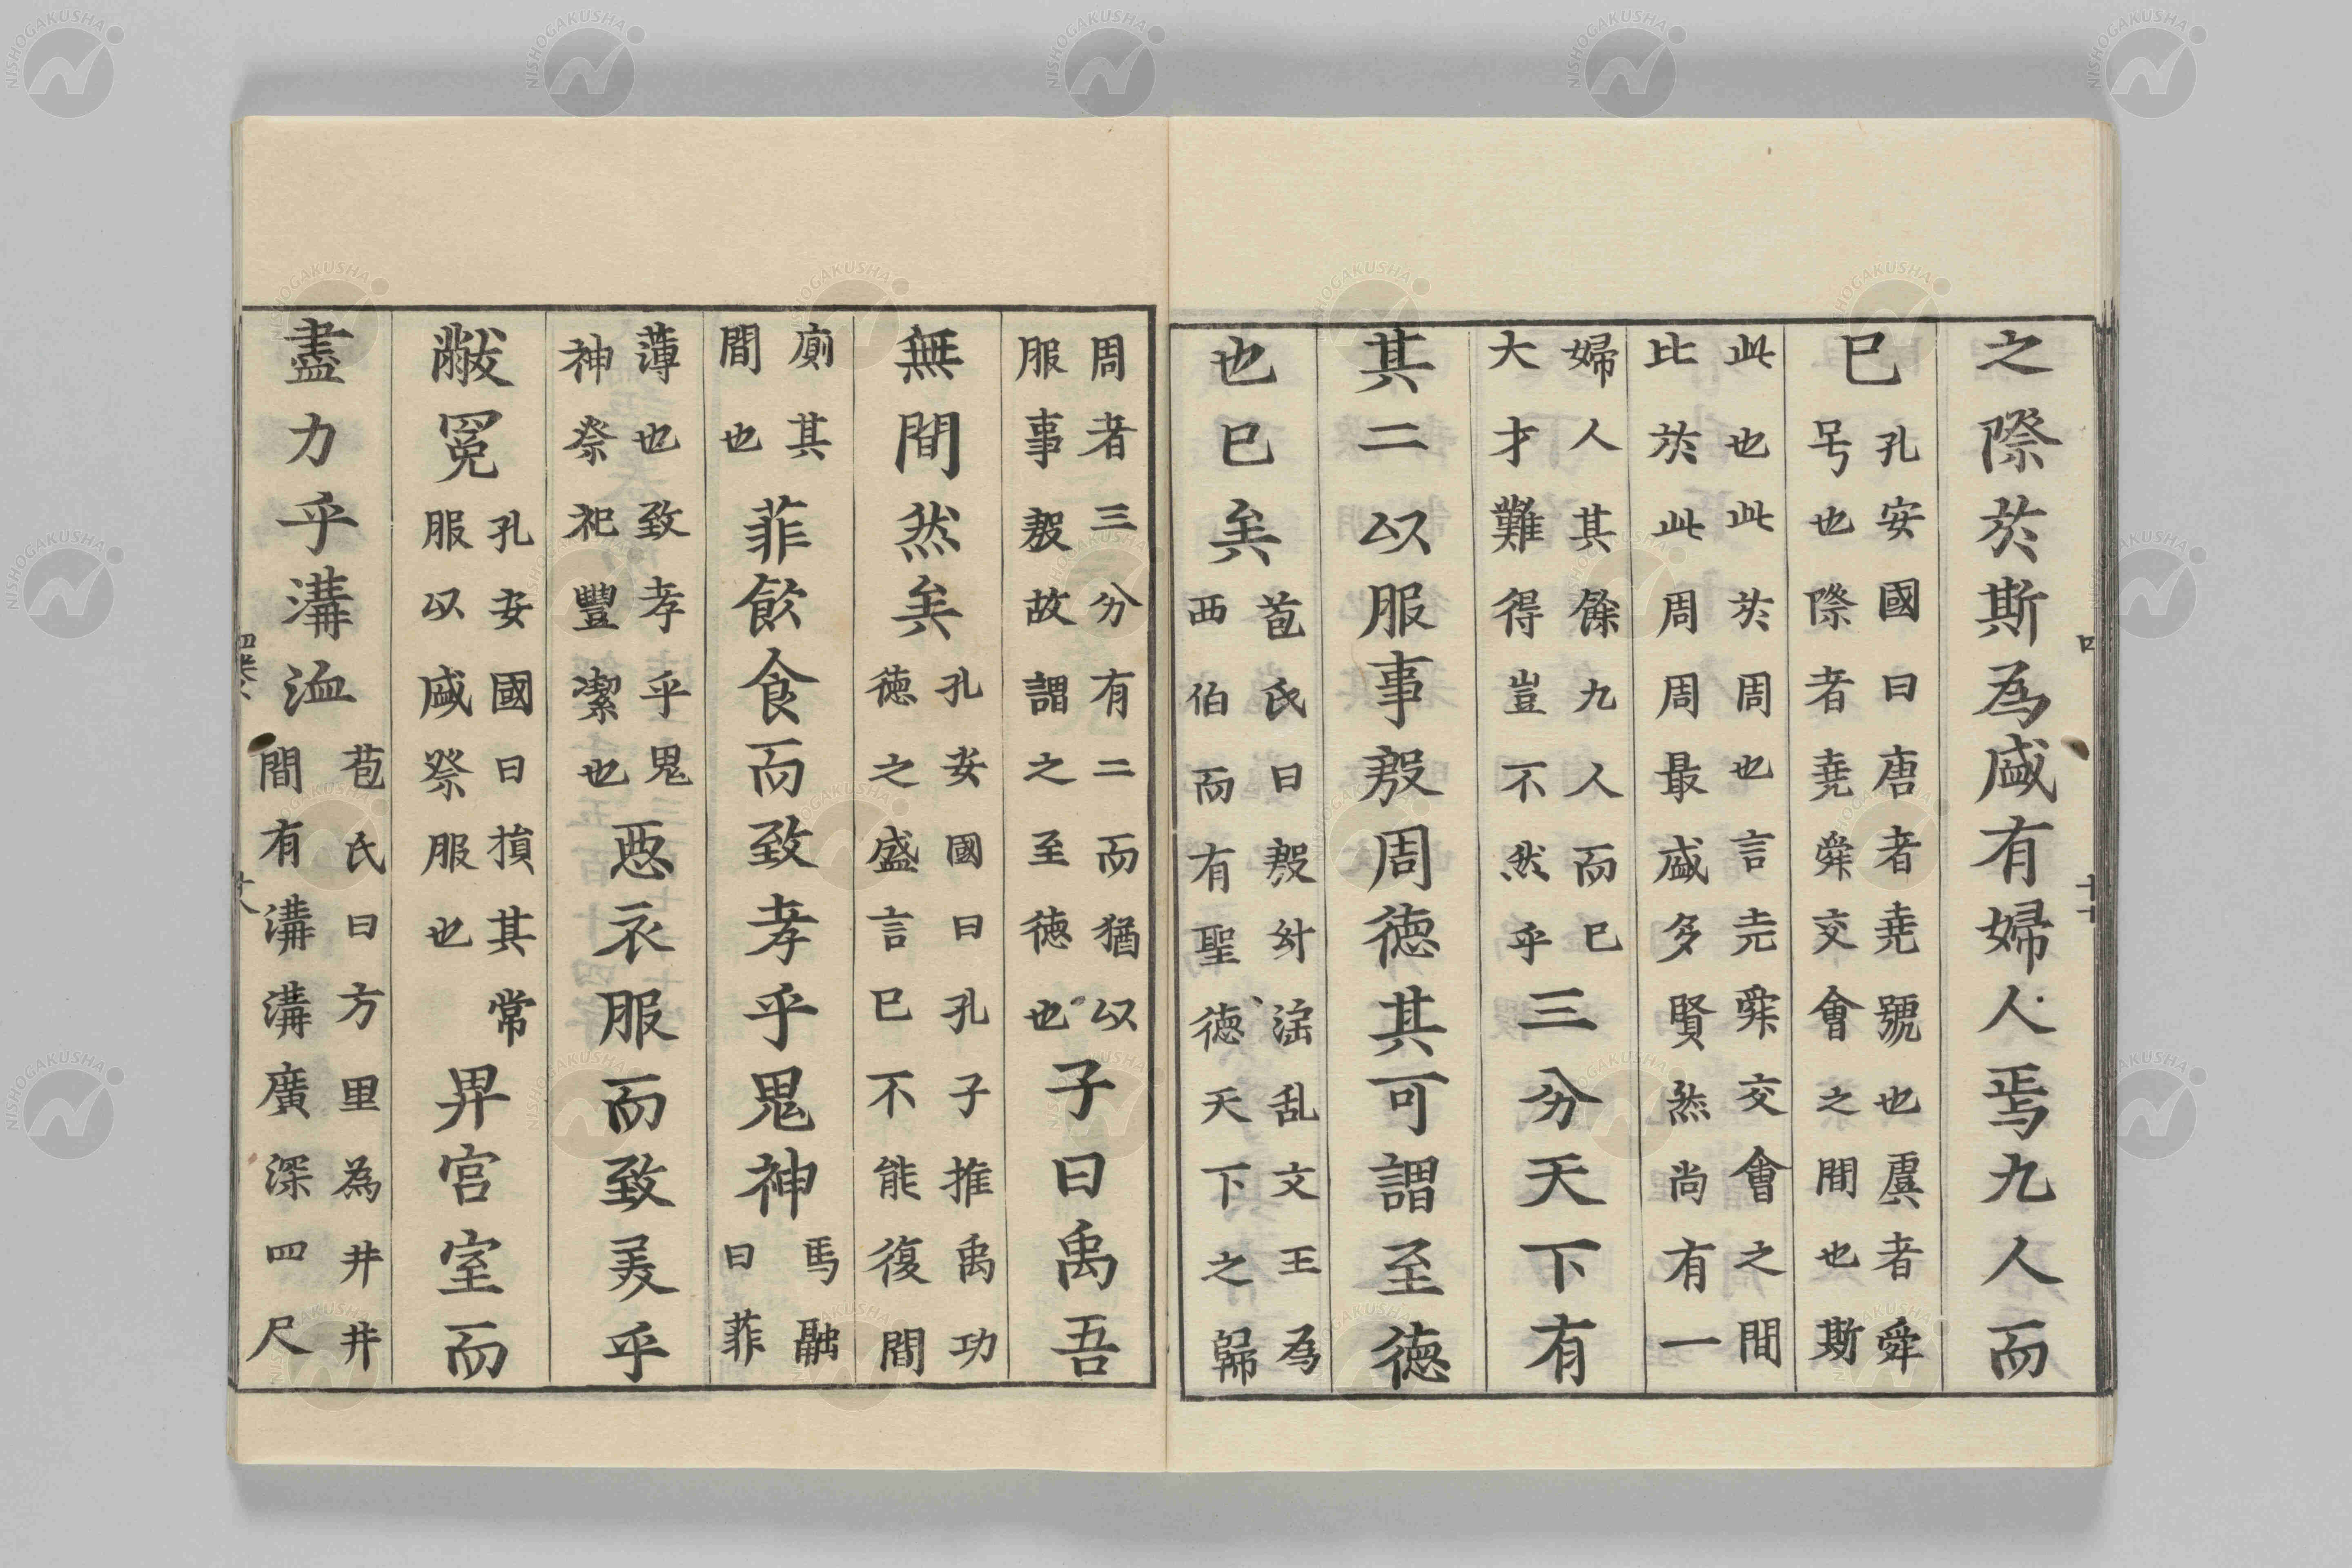 之際於斯為盛有婦人焉九人而
已
孔安國曰唐者堯號也虞者舜
号也際者堯舜交會之間也斯
此也此於周周也言尭舜交會之間
比於此周周最盛多賢然尚有一
婦人其餘九人而已
大才難得豈不然乎
三分天下有
其二以服事殷周徳其可謂至徳
也已矣
苞氏曰殷紂滛乱文王為
西伯而有聖徳天下之歸
周者三分有二而猶以
服事殷故謂之至徳也
子曰禹吾
無間然矣
孔安國曰孔子推禹功
徳之盛言已不能復間
廁其
間也
菲飲食而致孝乎鬼神
馬融
曰菲
薄也致孝乎鬼
神祭祀豐潔也
惡衣服而致美乎
黻冕
孔安國曰損其常
服以盛祭服也
卑宮室而
盡力乎溝洫
苞氏曰方里為井井
間有溝溝廣深四尺